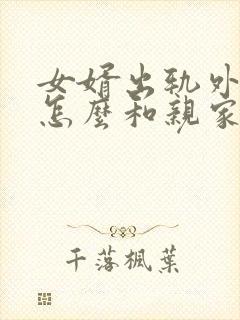 女婿出轨外
怎麼和親家
千落楓葉